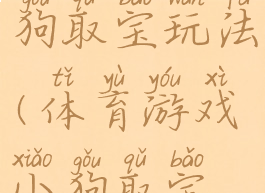 gǒu qǔ bǎo wán fǎ
狗取宝玩法
tǐ yù yóu xì
(体育游戏
xiǎo gǒu qǔ bǎo
小狗取宝